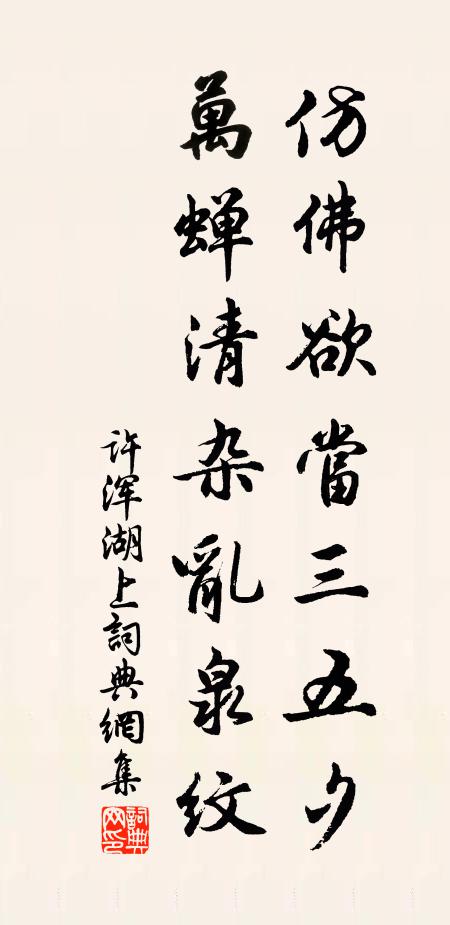 仿佛欲當三五夕
萬蝉清杂亂泉紋
许浑湖上詞典網集
詞典网印